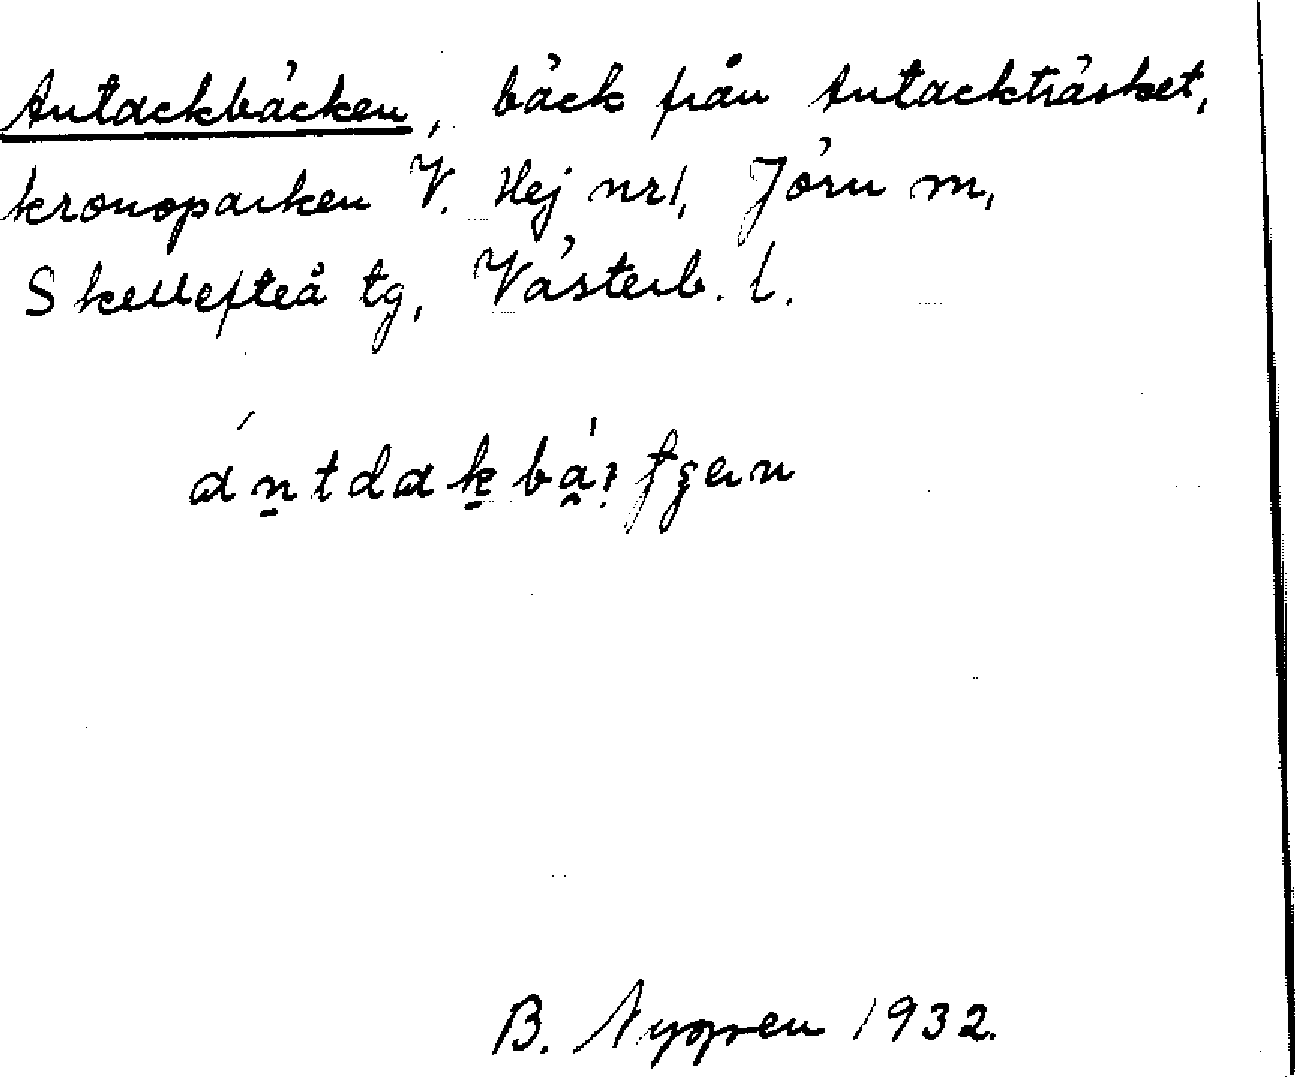 Antackbäcken, bäck från Antackträsket,
kronoparken V. Hej nr 1, Jörn m,
Skellefteå tg, Västerb. l.
B. Nygren 1932.